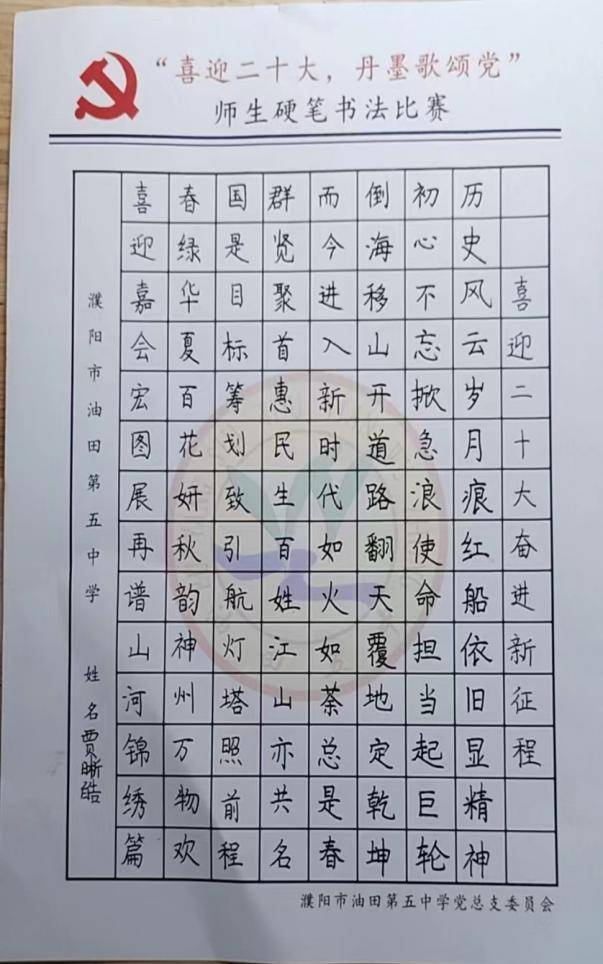 “喜迎二十大，丹墨歌颂党”
师生硬笔书法比赛
喜迎二十大奋进新征程
历史风云岁月痕红船依旧显精神
初心不忘掀急浪使命担当起巨轮
倒海移山开道路翻天覆地定乾坤
而今进入新时代如火如荼总是春
群贤聚首惠民生百姓江山亦共名
国是目标筹划致引航灯塔照前程
春绿华夏百花妍秋韵神州万物欢
喜迎嘉会宏图展再谱山河锦绣篇
濮阳市油田第五中学
姓名贾晰皓
濮阳市油田第五中学党总支委员会